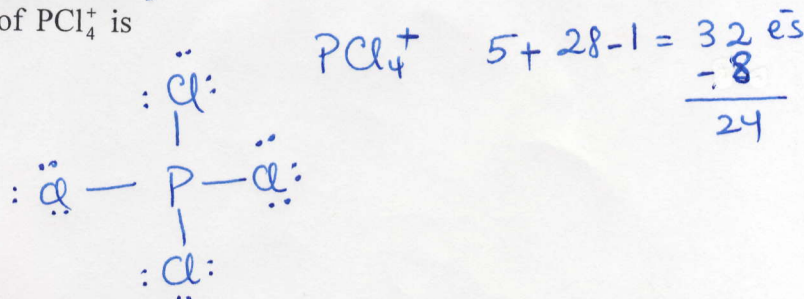 of PCl₄⁺ is
PCl₄⁺ 5+28-1 = 32 ēs
-8
24
Cl
Cl — P — Cl
Cl